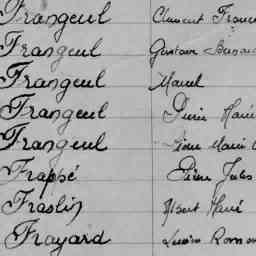 Frangeul Clément Franc
Frangeul Gustave
Frangeul Marcel
Frangeul Pierre Marie
Frangeul Pierre Marie
Frappé Pierre Jules
Fraslin Albert Marie
Frayard Lucien Romain